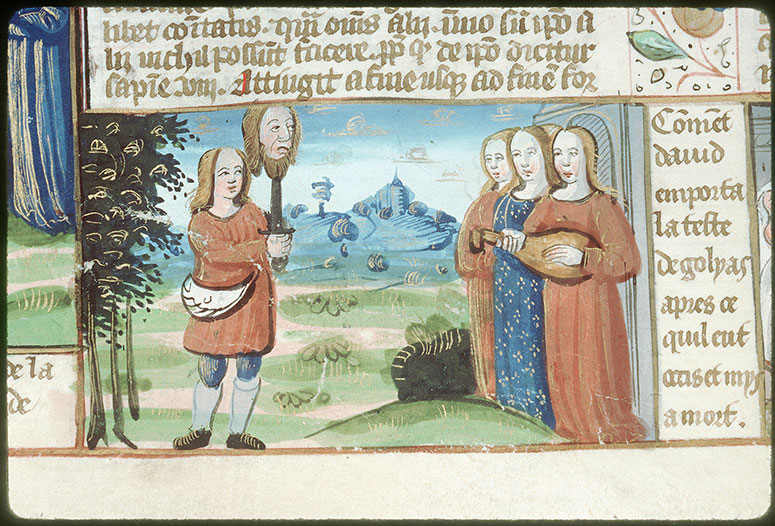 libet om̄s alij
nichil possunt facere de ipō dicitur
sapīe viij. Attingit a fine usq ad finē for
Com̄et
dauid
emporta
la teste
de golyas
apres ce
quil eut
occis et mys
a mort.
de la
de